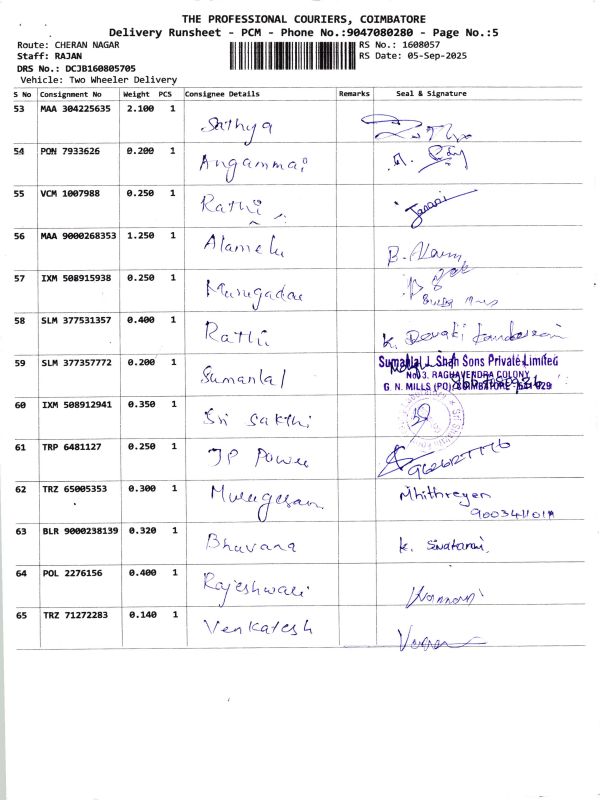 THE PROFESSIONAL COURIERS, COIMBATORE
Delivery Runsheet - PCM - Phone No.:9047080280 - Page No.:5
Route: CHERAN NAGAR
RS No.: 1608057
Staff: RAJAN
RS Date: 05-Sep-2025
DRS No.: DCJB160805705
Vehicle: Two Wheeler Delivery
S No Consignment No Weight PCS Consignee Details Remarks Seal & Signature
53 MAA 304225635 2.100 1 Sathya
54 PON 7933626 0.200 1 Angammai
55 VCM 1007988 0.250 1 Rathi Janani
56 MAA 9000268353 1.250 1 Alamelu B.
57 IXM 508915938 0.250 1
58 SLM 377531357 0.400 1 Rathi K. Devaki
59 SLM 377357772 0.200 1 Sumanlal
Sumanlal J. Shah Sons Private Limited
No.3, RAGHAVENDRA COLONY
G. N. MILLS (PO) COIMBATORE - 641 029
60 IXM 508912941 0.350 1 Sri Sakthi
61 TRP 6481127 0.250 1 JP Power
62 TRZ 65005353 0.300 1 Murugesan Mhithreyen
63 BLR 9000238139 0.320 1 Bhuvana K.
64 POL 2276156 0.400 1 Rajeshwari
65 TRZ 71272283 0.140 1 Venkatesh